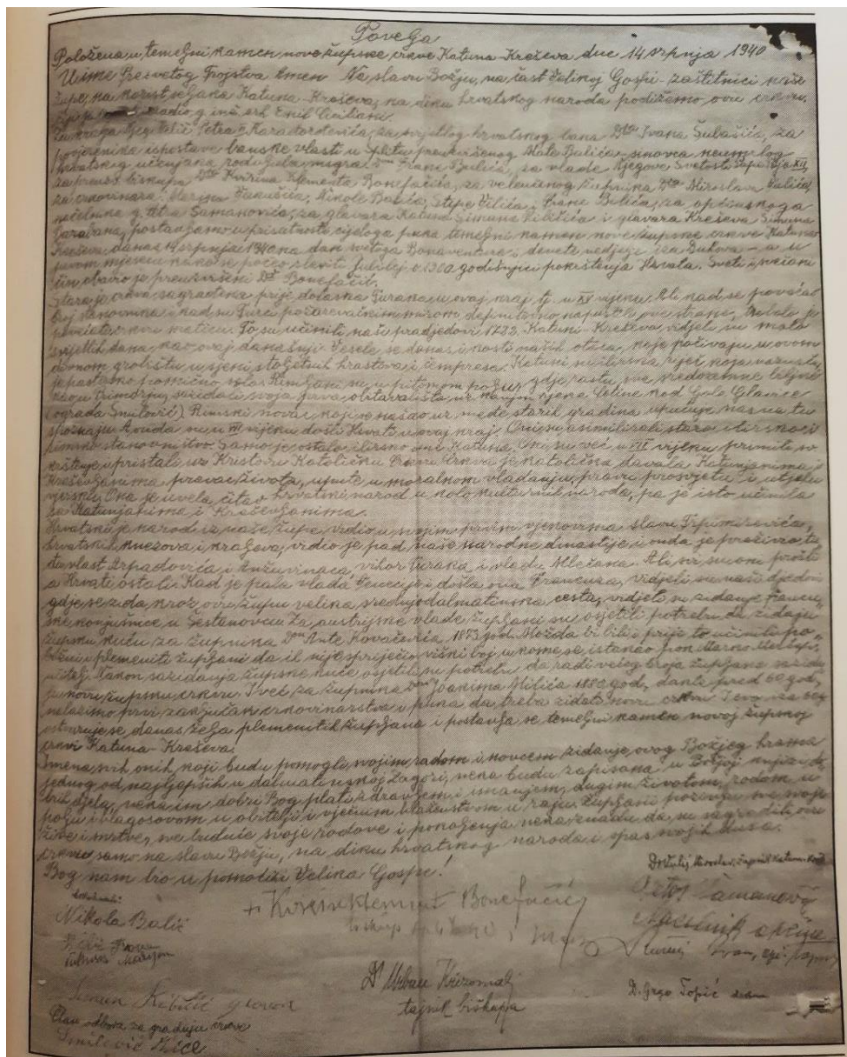 Povelja
Položena u temeljni kamen nove župske crkve Katuna-Kreševa dne 14 srpnja 1940
U ime Presvetog Trojstva Amen Na slavu Božju, na čast Velikoj Gospi - zaštitnici naše
župe, na korist seljana Katuna-Kreševa, na diku hrvatskog naroda podižemo ovu crkvu,
radio g inž arh Emil Ciciliani
Za kralja Petra II Karađorđevića, za svijetlog hrvatskog bana Dra Ivana Šubašića, za
povjerenika ispostave banske vlasti u Splitu Mate Bulića - sinovca neumrlog
hrvatskog učenjaka rodoljuba Frane Bulića, za vlade Njegove Svetosti Pape Pija XII,
za biskupa Dra Kvirina Klementa Bonefačića, za velečasnog župnika Miroslava Vulića,
za crkovinara: Marijana Vukušića, Nikole Balića, Stipe Vilića, Frane Bulića, za općinskoga
načelnika g. Petra Samanovića, za glavara Katuna Šimuna Kibičića i glavara Kreševa Šimuna
postavljamo u prisutnosti cijeloga puka temeljni kamen nove župske crkve Katuna
Kreševa, danas 14 srpnja 1940 na dan svetoga Bonaventure i devete nedjelje iza Duhova - a u
prvom mjesecu kako se počeo slaviti Jubilej o 1300 godišnjici pokrštenja Hrvata. Sveti i svečani
čin obavio je preuzvišeni Dr Bonefačić.
Stara je crkva sagrađena prije dolaska Turaka u ovaj kraj tj. u XV vijeku. Ali kad se povećao
broj stanovnika i kad su Turci požarevačkim mirom definitivno napustili ove strane, trebalo je
povećati crkvu. To su učinili naši pradjedovi 1722. Katuni-Kreševo vidjelo su malo
svijetlih dana kao ovaj današnji. Vesele se danas i kosti naših otaca, koje počivaju u ovom
divnom groblištu u sjeni stoljetnih hrastova i čempresa. Katuni su ilirska riječ koja naznačuje
pastirsko pomično selo. Rimljani su u pitomom polju, gdje rastu sve sredozemne biljine
kao u Primorju, svoja prva obitavališta uz kraj rijeke Cetine kod Gole Glavice
(ograda Smilović) Rimski novci koji se našao uz međe starih gradina upućuje nas na tu
spoznaju. Konda su u VII vijeku došli Hrvati u ovaj kraj. Oni su asimilirali staro ilirsko i
rimsko stanovništvo. Samo je ostalo ilirsko ime Katuna. Oni su već u VII vijeku primili sv
krštenje i pristali uz Kristovu Katoličku Crkvu. Crkva je katolička davala Katunjanima i
Kreševljanima pravac života, upute u moralnom vladanju, pravu prosvjetu i utjehu
vjersku. Ona je uvela čitav hrvatski narod u kolo kulturnih naroda, pa je isto učinila
sa Katunjanima i Kreševljanima.
Hrvatski je narod iz naše župe, vidio u svojim prvim vjekovima slavu Trpimirovića,
hrvatskih knezova i kraljeva, vidio je pad naše narodne dinastije i onda je proživio tu
vlast Arpadovića i Anžuvinaca, vihor Turaka i vladu Mlečana. Ali svi su oni prošli
a Hrvati ostali. Kad je pala vlada Venecije i došla ona Francuza, vidjeli su naši djedovi
gdje se zida kroz ovu župu velika srednjodalmatinska cesta, vidjeli su zidanje francu-
ske konjušnice u Šestanovcu. Za austrijske vlade župljani su osjetili potrebu da zidaju
župsku kuću za župnika Don Ante Kovačevića 1873 god. Možda bi bili i prije to učinili po-
božni i plemeniti župljani da ih nije spriječio viški boj u kome se istakao
Nakon sazidanja župske kuće osjetili su potrebu da radi velikog broja župljana sazida-
ju novu župsku crkvu. I već za župnika Don Joakima Milića 1880 god, dakle pred 60 god,
nalazimo prvi zaključak crkovinarstva i puka da treba zidati novu crkvu. I evo iza 60 g
ostvaruje se danas želja plemenitih župljana i postavlja se temeljni kamen novoj župskoj
crkvi Katuna-Kreševa.
Imena svih onih, koji budu pomogli svojim radom i novcem zidanje ovog Božjeg hrama
jednog od najljepših u dalmatinskoj Zagori, neka budu zapisana u Božjoj knjizi do-
brih djela, neka im dobri Bog plati zdravljem i imanjem, dugim životom, rodom u
polju i blagoslovom u obitelji i vječnim blaženstvom u raju. Župljani pozivlju sve svoje
žive i mrtve, sve buduće svoje rodove i pokoljenja neka znadu da su sagradili ovu
crkvu samo na slavu Božju, na diku hrvatskog naroda i spas svojih duša.
Bog nam bio u pomoći i Velika Gospe!
Dr Vulić Miroslav, župnik Katuna-Kreš
Nikola Balić
+ Kvirin Klement Bonefačić
biskup
Petar Samanović
Načelnik općine
Vilić Frane
Vukušić Marijan
Dr Urban Krizomali
tajnik biskupa
D. Grgo Topić
Šimun Kibičić glavar
Član odbora za gradnju crkve
Smilović Mićo